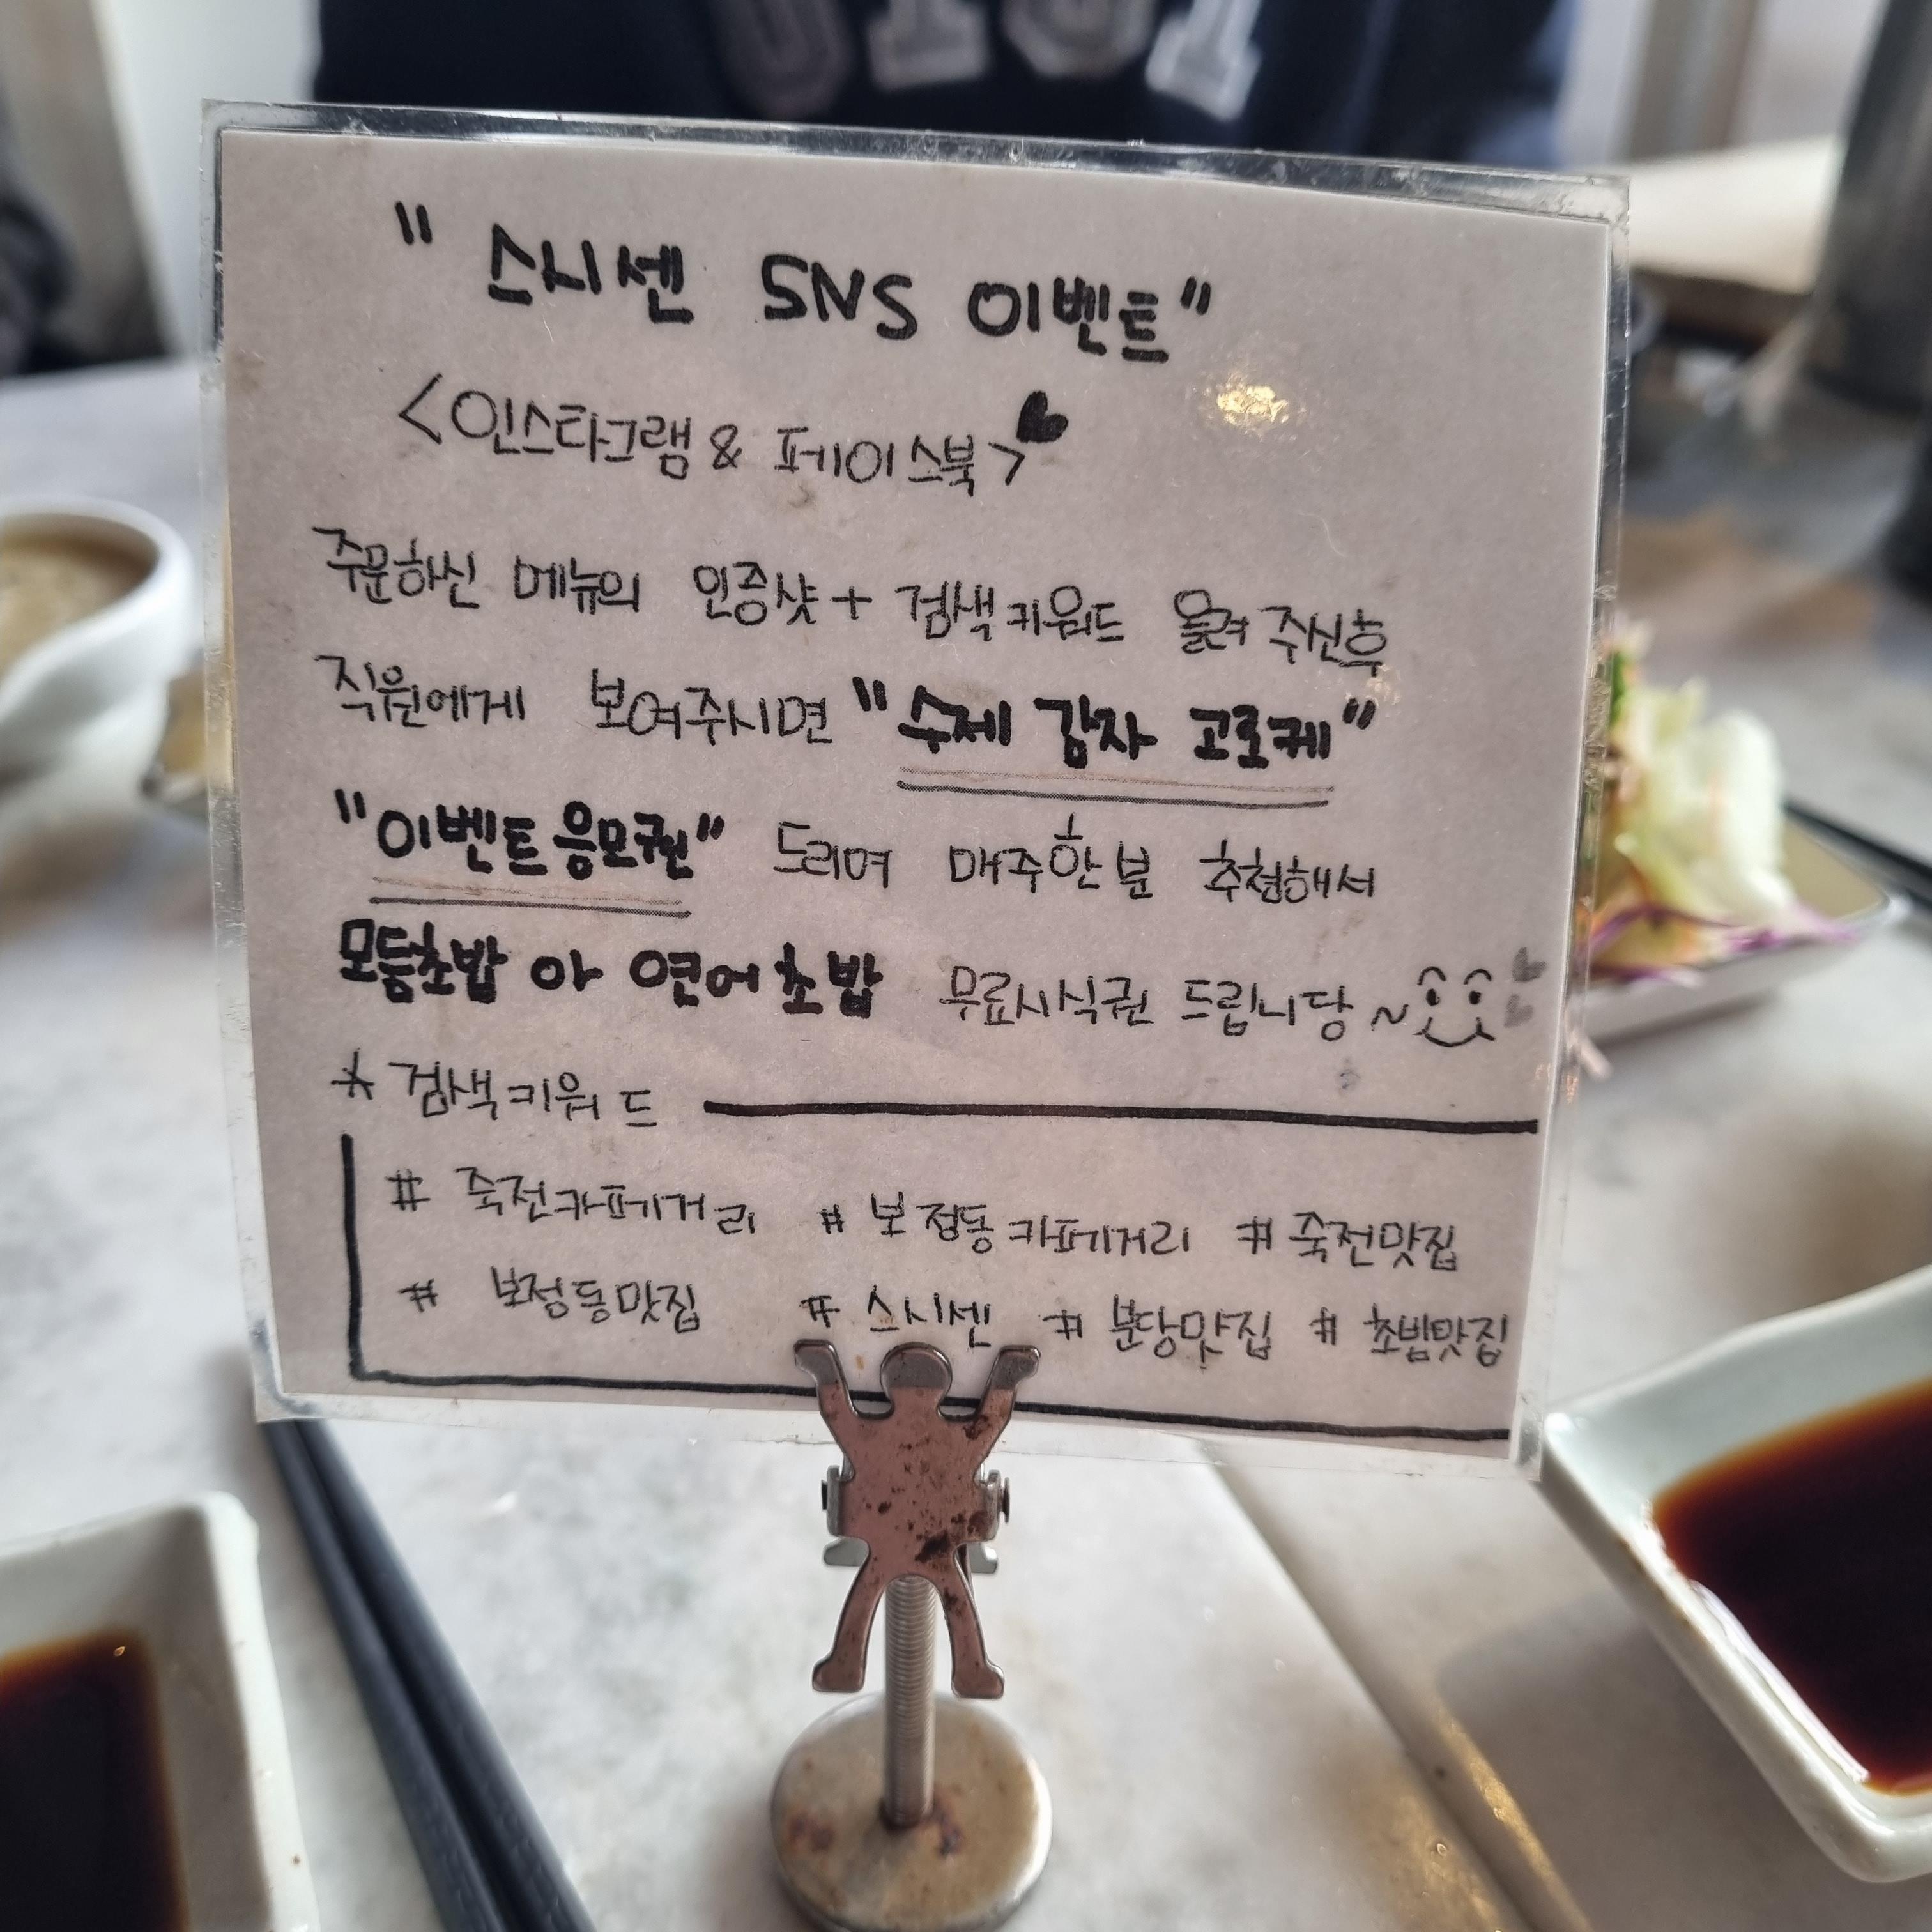 " 스시센 SNS 이벤트"
<인스타그램 & 페이스북>
주문하신 메뉴의 인증샷 + 검색키워드 올려주신후
직원에게 보여주시면 "수제 감자 고로케"
"이벤트응모권" 드리며 매주한분 추첨해서
모듬초밥 아 연어초밥 무료시식권 드립니당~
* 검색키워드
# 죽전카페거리 # 보정동카페거리 # 죽전맛집
# 보정동맛집 # 스시센 # 분당맛집 # 초밥맛집